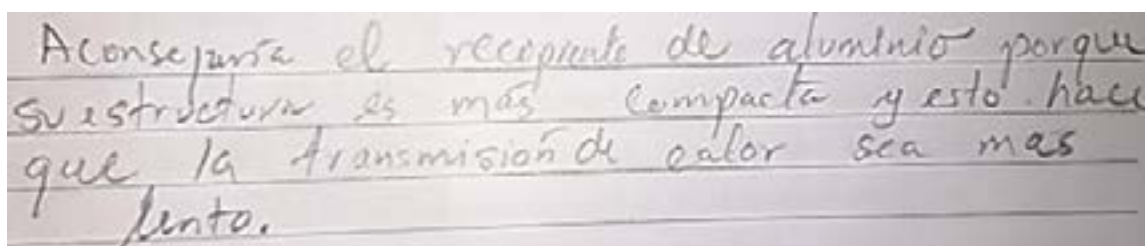 Aconsejaría el recipiente de aluminio porque
su estructura es más compacta y esto hace
que la transmisión de calor sea mas
lento.